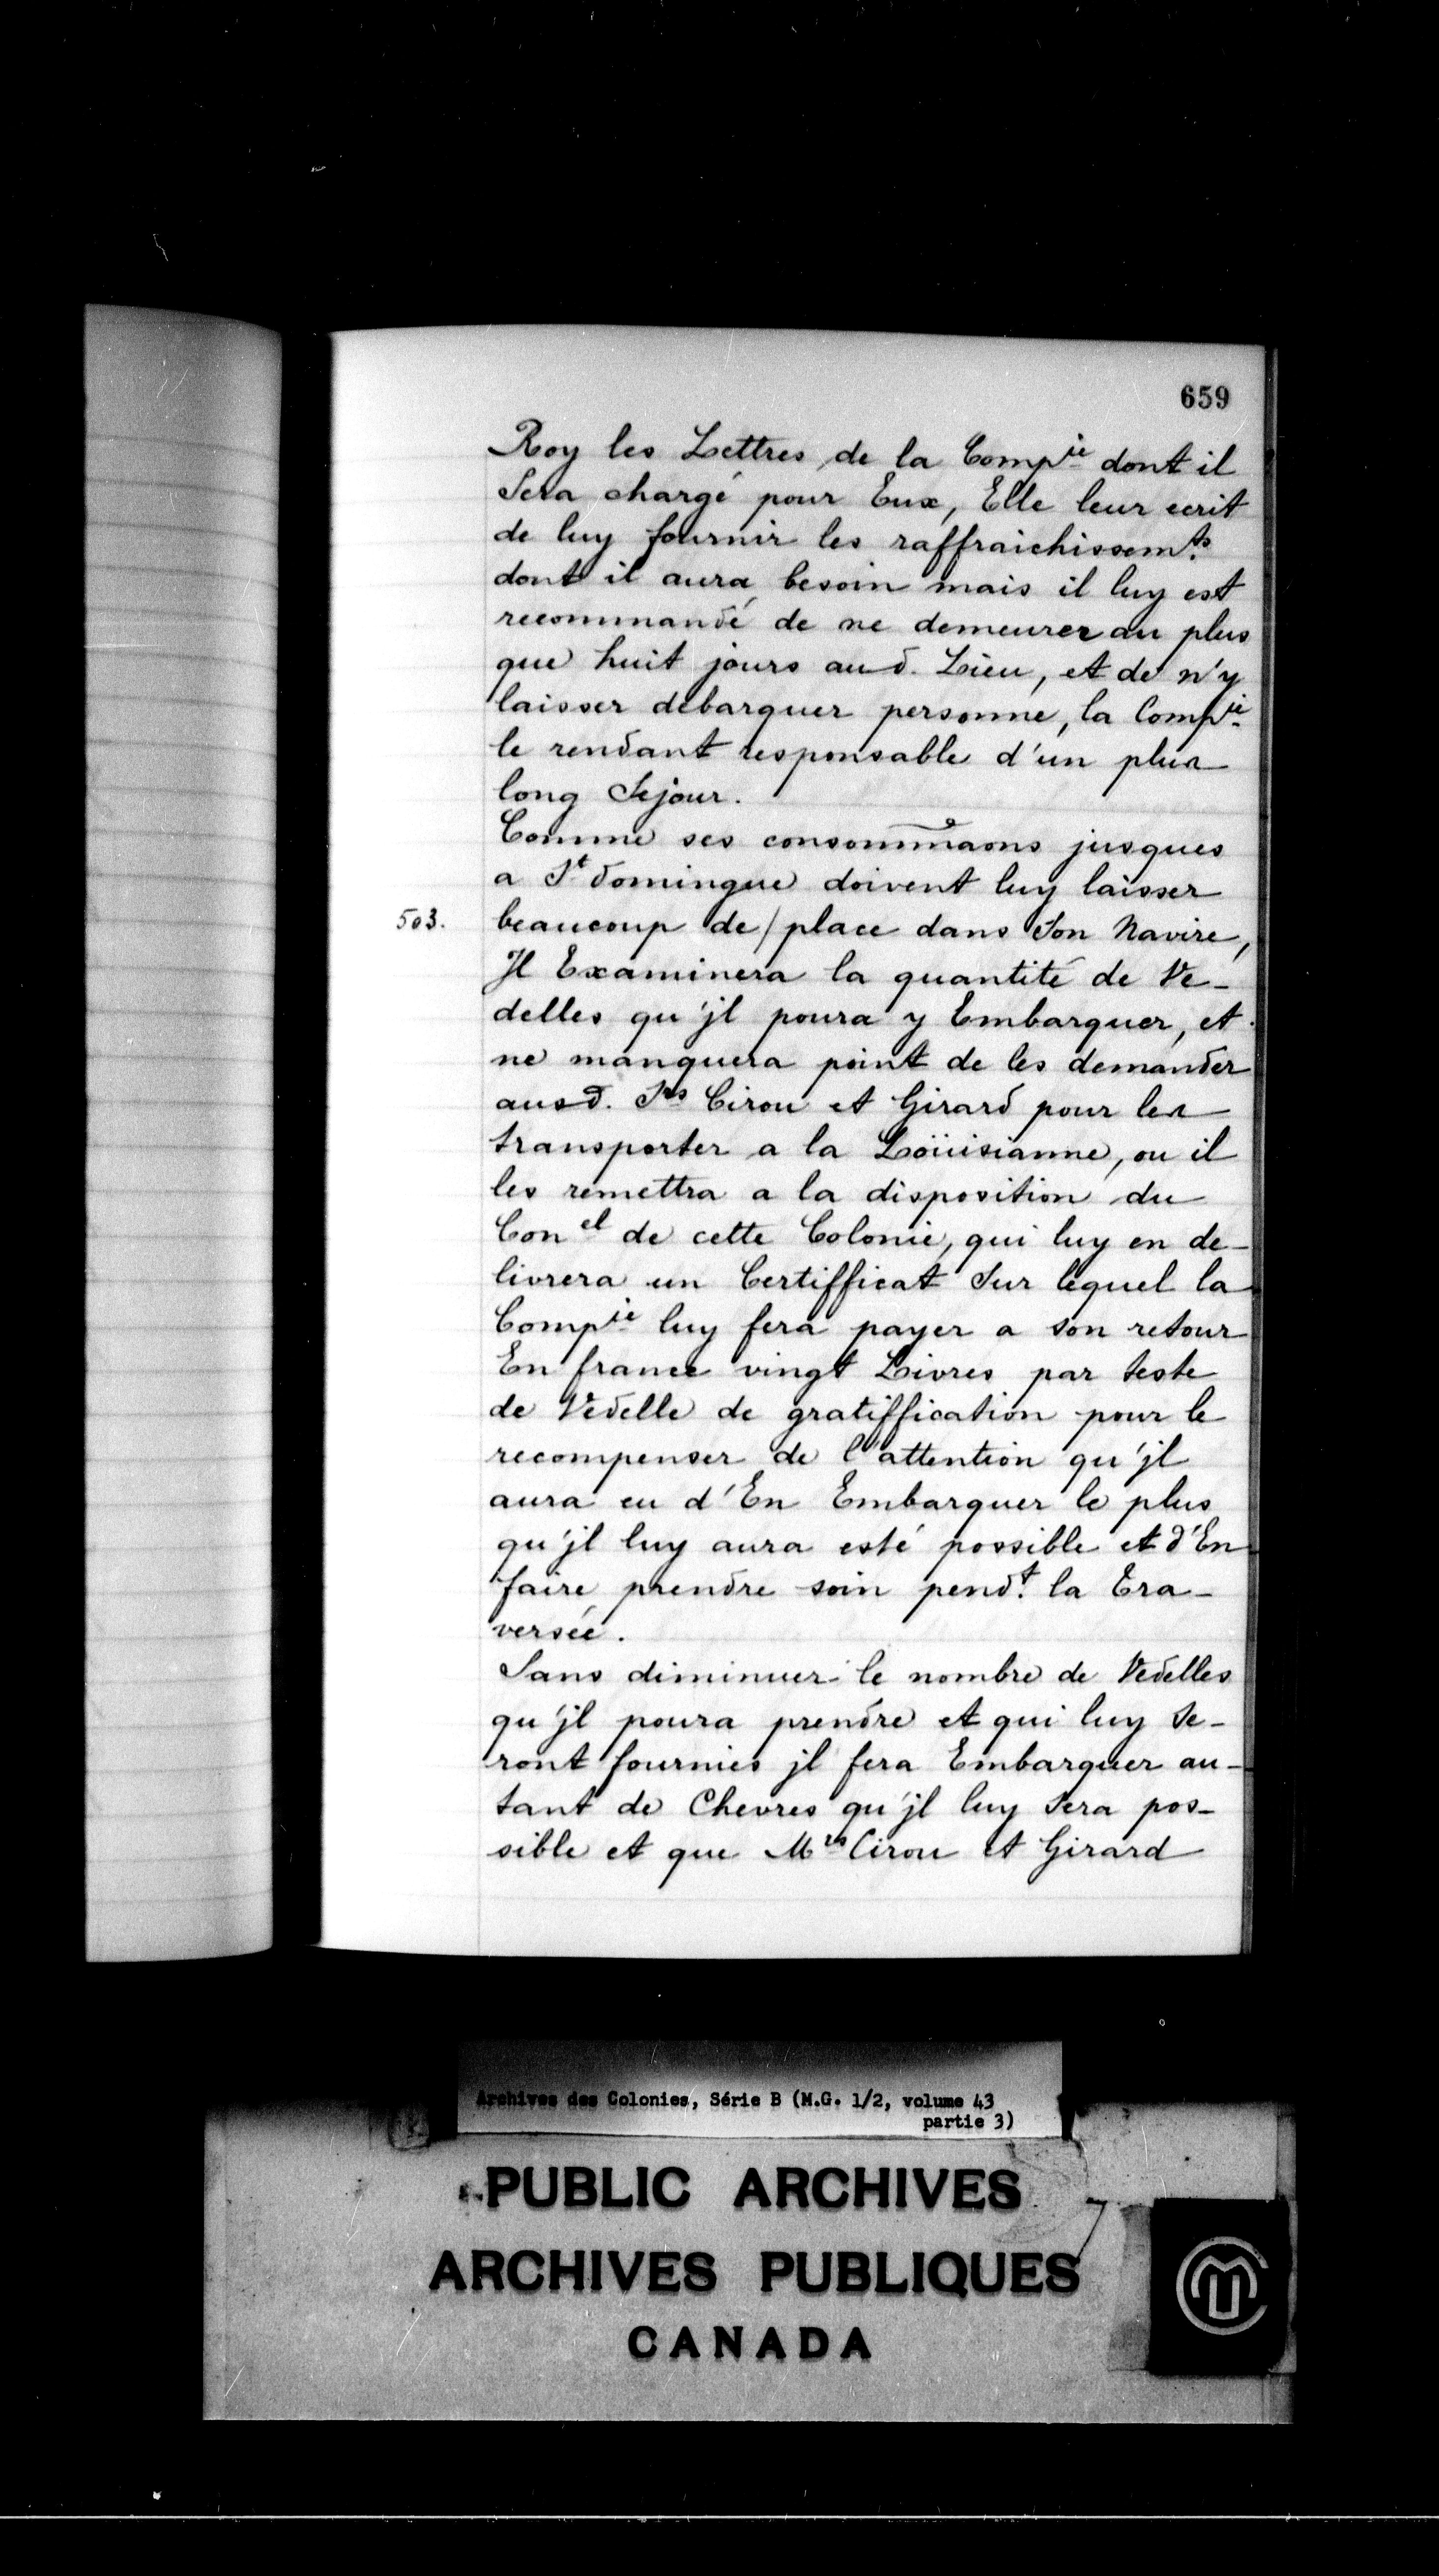 659
Roy les Lettres de la Compie dont il
Sera chargé pour Eux, Elle leur ecrit
de luy fournir les raffraichissemts
dont il aura besoin mais il luy est
recommandé de ne demeurer au plus
que huit jours aud. Lieu, et de n'y
laisser debarquer personne, la Compie
le rendant responsable d'un plus
long Sejour.
Comme ses consommaons jusques
a St domingue doivent luy laisser
503. beaucoup de/place dans Son Navire,
Il Examinera la quantité de Ve-
delles qu'jl poura y Embarquer, et
ne manquera point de les demander
ausd. Srs Cirou et Girard pour les
transporter a la Loüisianne, ou il
les remettra a la disposition du
Conel de cette Colonie, qui luy en de-
livrera un Certifficat Sur lequel la
Compie luy fera payer a son retour
En france vingt Livres par teste
de Vedelle de gratiffication pour le
recompenser de l'attention qu'jl
aura eu d'En Embarquer le plus
qu'jl luy aura esté possible et d'En
faire prendre soin pendt. la Tra-
versée.
Sans diminuer le nombre de Vedelles
qu'jl poura prendre et qui luy Se-
ront fournies jl fera Embarquer au-
tant de Chevres qu'jl luy Sera pos-
sible et que Mrs Cirou et Girard
Archives des Colonies, Série B (M.G. 1/2, volume 43
partie 3)
PUBLIC ARCHIVES
ARCHIVES PUBLIQUES
CANADA